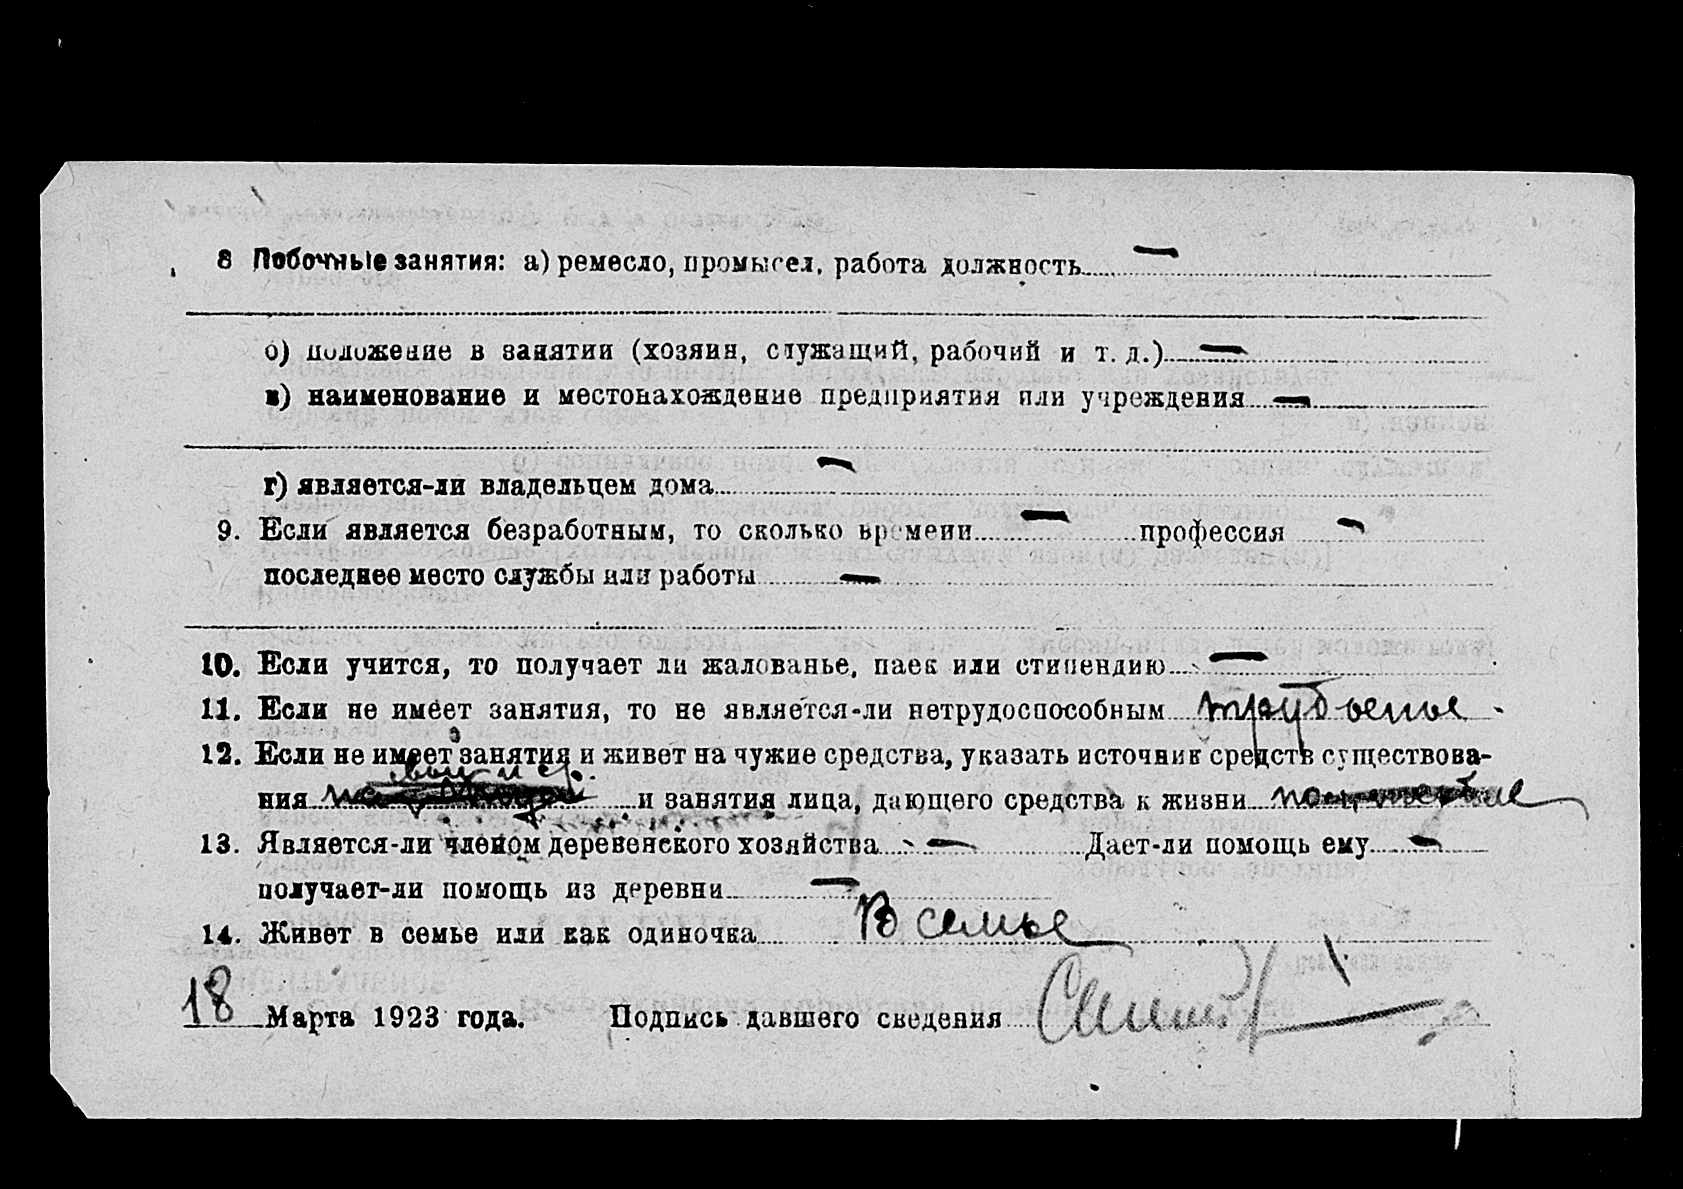 8 Побочные занятия: а) ремесло, промысел, работа должность —
б) положение в занятии (хозяин, служащий, рабочий и т. д.) —
в) наименование и местонахождение предприятия или учреждения —
г) является-ли владельцем дома —
9. Если является безработным, то сколько времени — профессия —
последнее место службы или работы —
10. Если учится, то получает ли жалованье, паек или стипендию —
11. Если не имеет занятия, то не является-ли нетрудоспособным
12. Если не имеет занятия и живет на чужие средства, указать источник средств существова-
ния и занятия лица, дающего средства к жизни
13. Является-ли членом деревенского хозяйства — Дает-ли помощь ему —
получает-ли помощь из деревни —
14. Живет в семье или как одиночка В семье
18 Марта 1923 года. Подпись давшего сведения